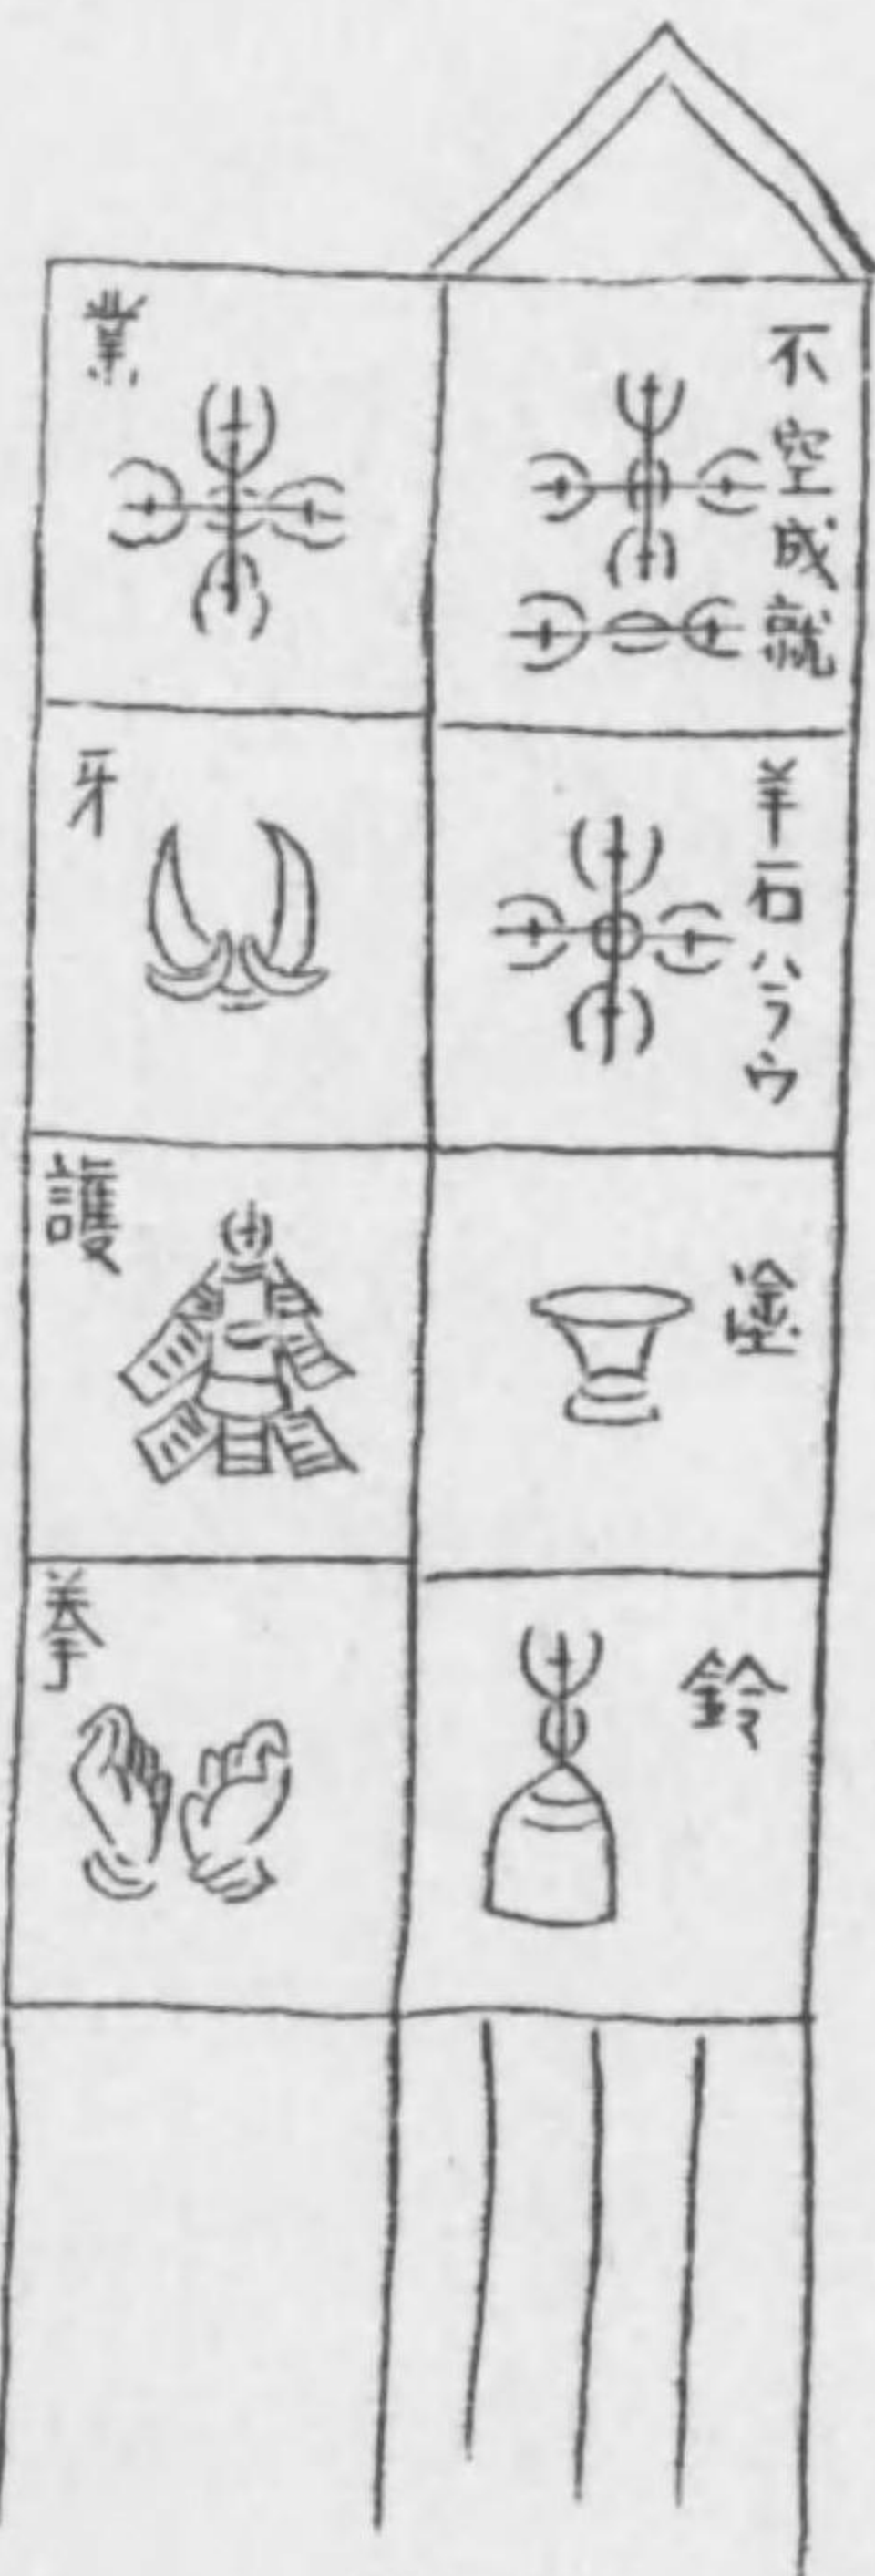 不空成就
羊石ハラウ
塗
鈴
業
牙
護
拳